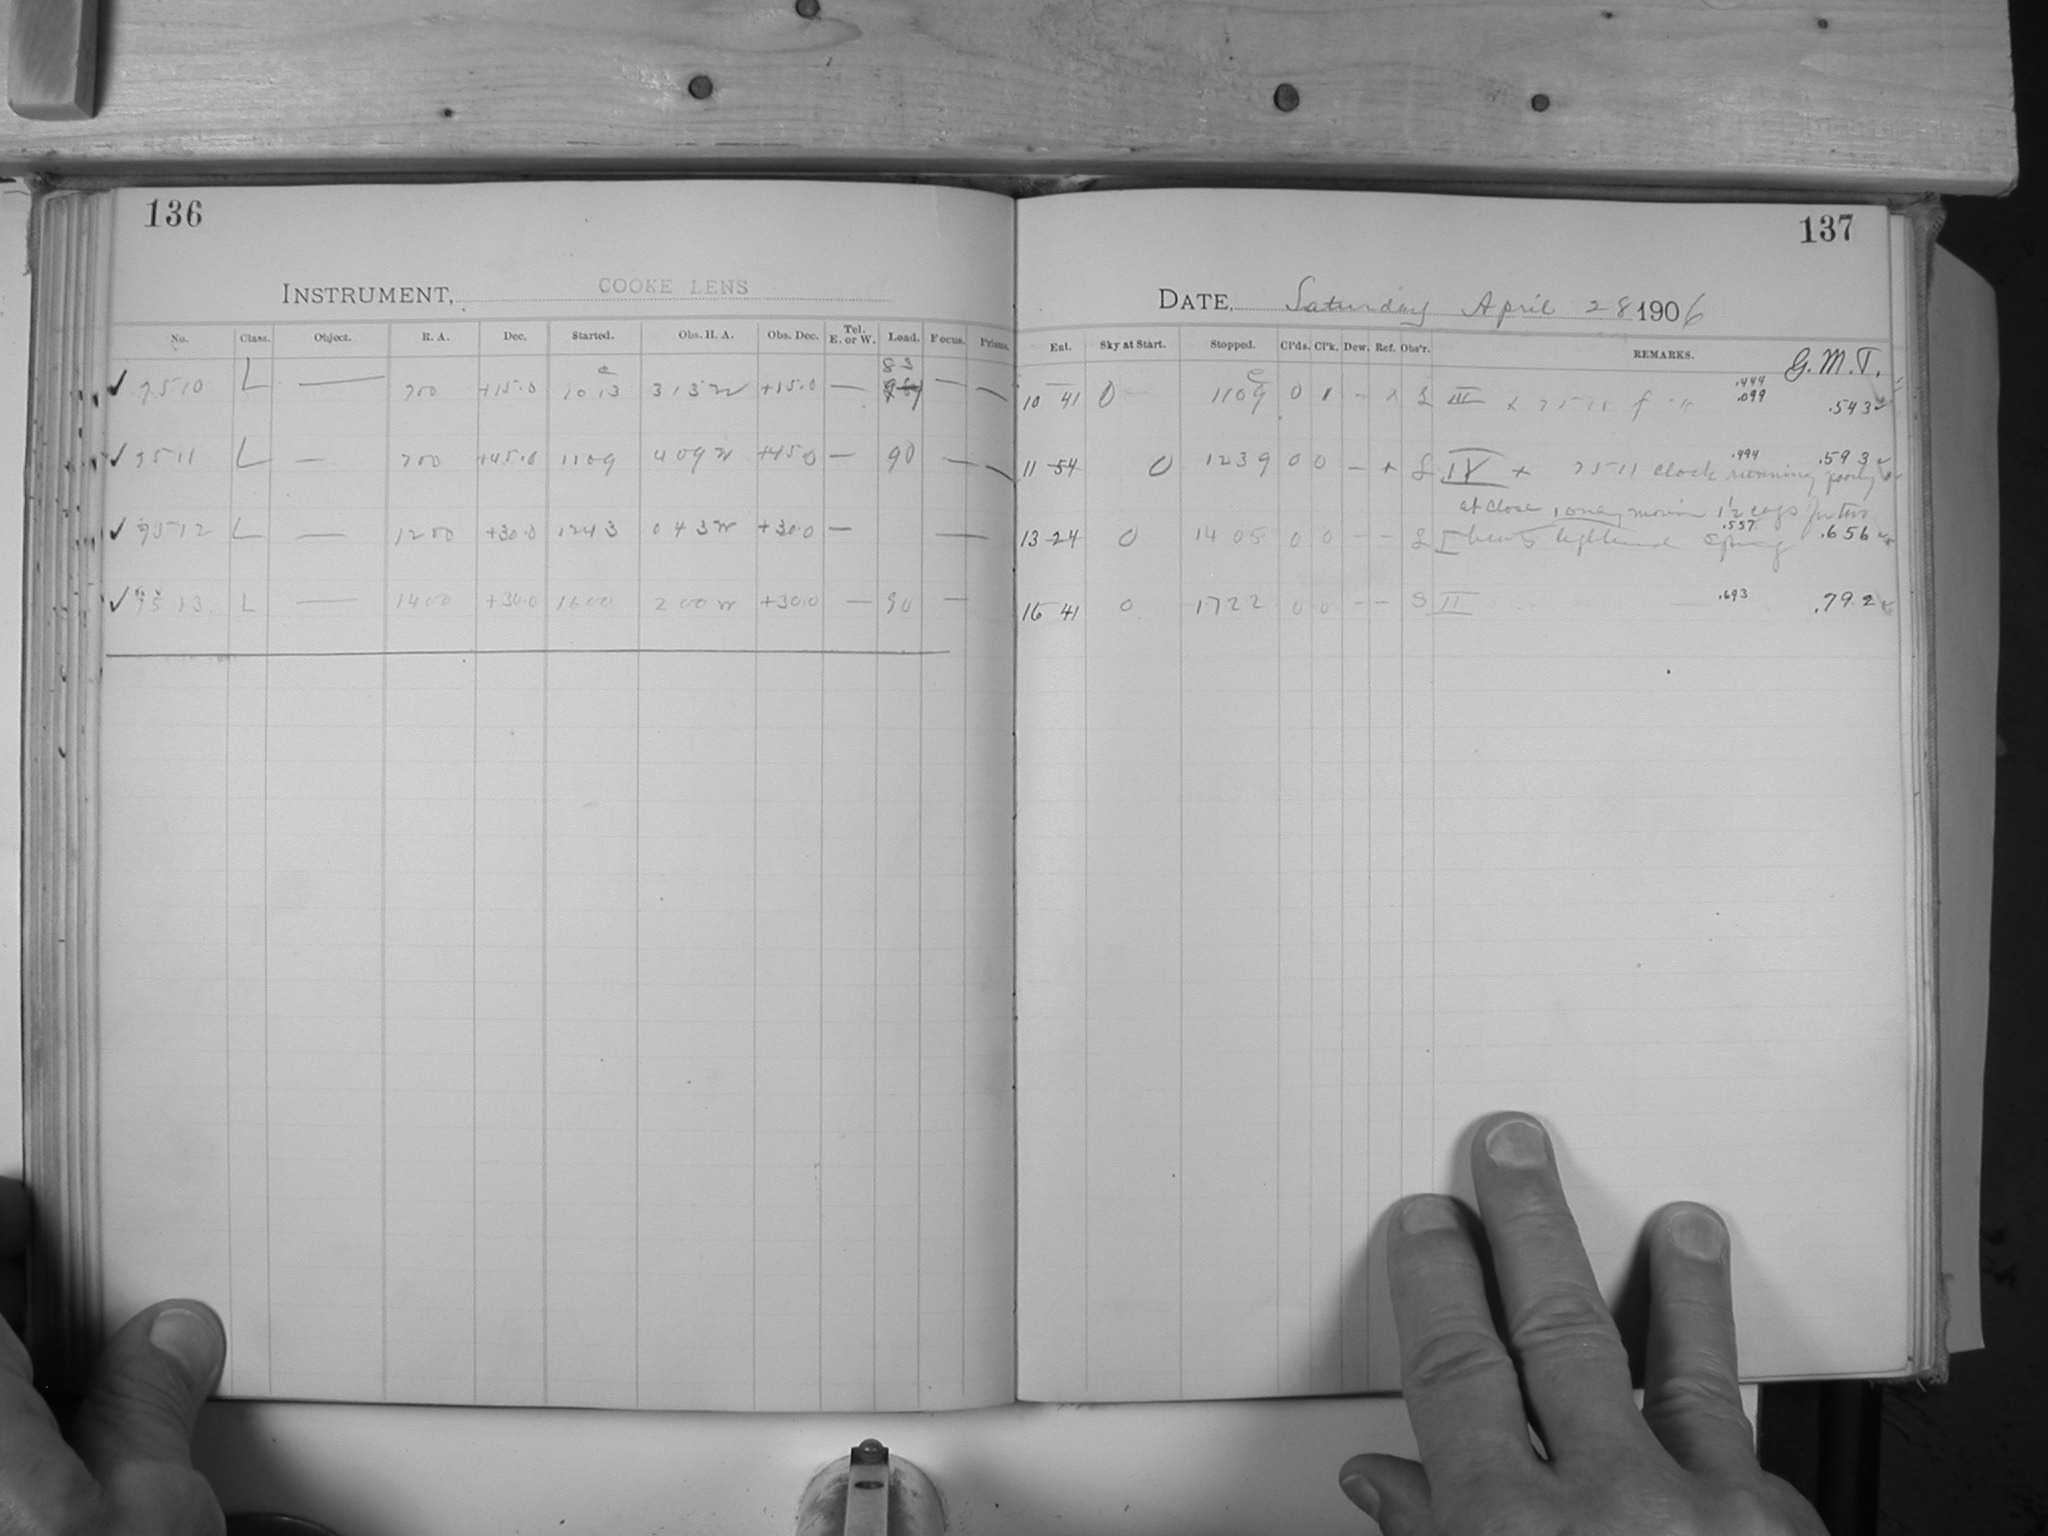 136
INSTRUMENT, COOKE LENS
No. Class. Object. R. A. Dec. Started. Obs. H. A. Obs. Dec. Tel. E. or W. Load. Focus. Prisms.
✓ 9510 L — 700 +15.0 1013 313 W +15.0 — 83 — —
✓ 9511 L — 700 +45.0 1109 409 W +45.0 — 90 — —
✓ 9512 L — 1200 +30.0 1243 043 W +30.0 — —
✓ 9513 L — 1400 +30.0 1600 200 W +30.0 — 90 —
137
DATE, Saturday April 28 1906
Ent. Sky at Start. Stopped. Cl'ds. Cl'k. Dew. Ref. Obs'r. REMARKS. G. M. T.
10 41 0 1109 0 1 – x III x .449 .099 .543 ✓
11 54 0 1239 0 0 – + IV + 9511 clock running poorly .494 .593 ✓
at close
13 24 0 1405 0 0 – – I tightened spring .557 .656 ✓
16 41 0 1722 0 0 – – II .693 .792 ✓